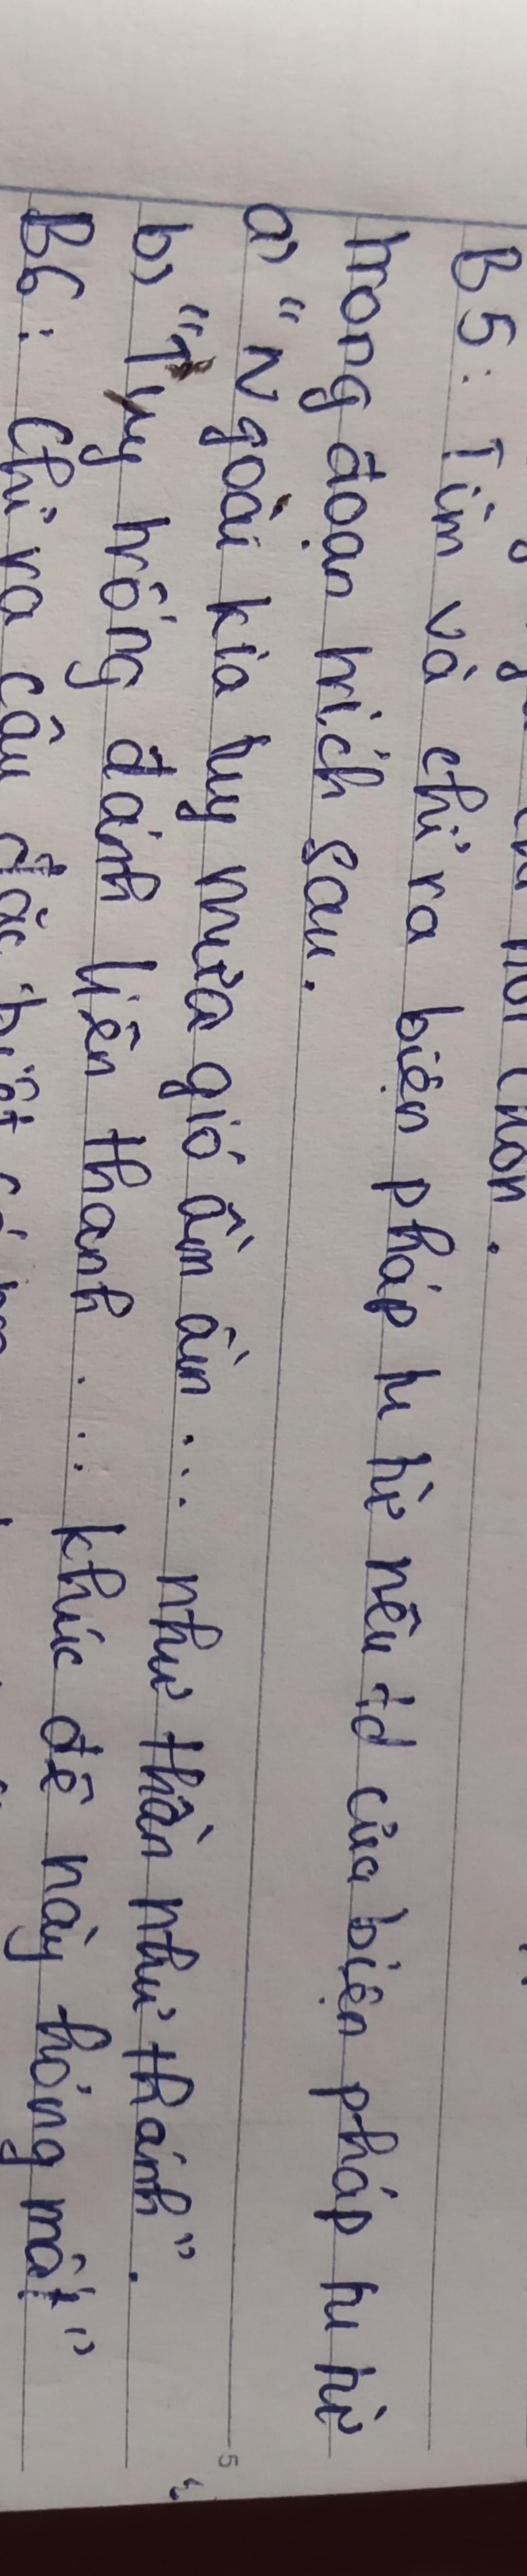 B5: Tìm và chỉ ra biện pháp tu từ nêu td của biện pháp tu từ
trong đoạn trích sau.
a, "Ngoài kia tuy mưa gió ầm ầm ... như thần như thánh".
b, "Tuy trống đánh liên thanh ... khúc đê này hỏng mất"
B6: Chỉ ra câu đặc biệt